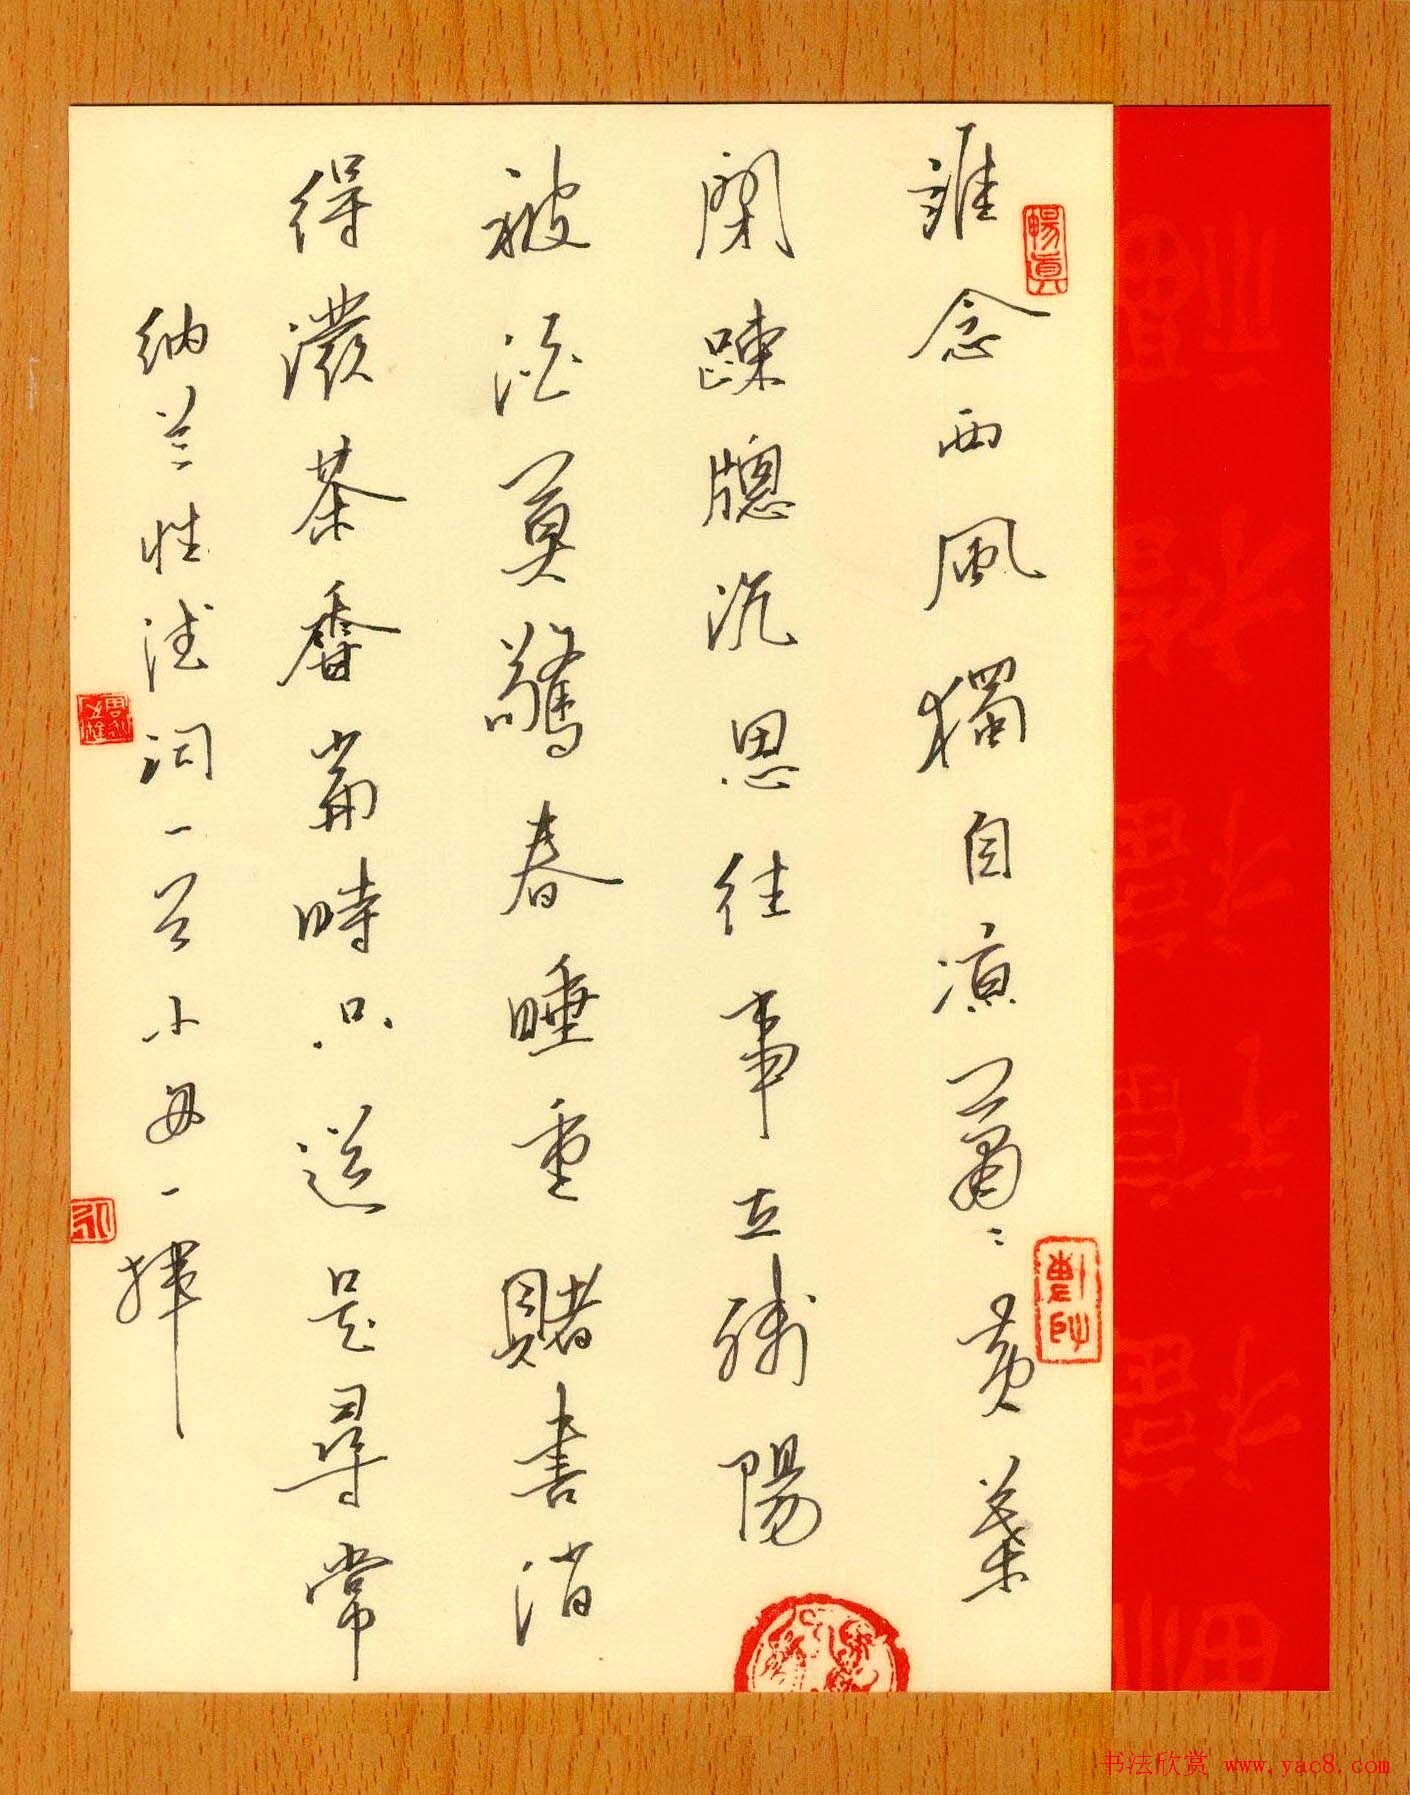 暢真
誰念西風獨自凉蕭〻黃葉
閉踈牎沉思往事立殘陽
被酒莫驚春睡重賭書消
得潑茶香當時只道是尋常
纳兰性德词一首小一揮
书法欣赏 www.yac8.com